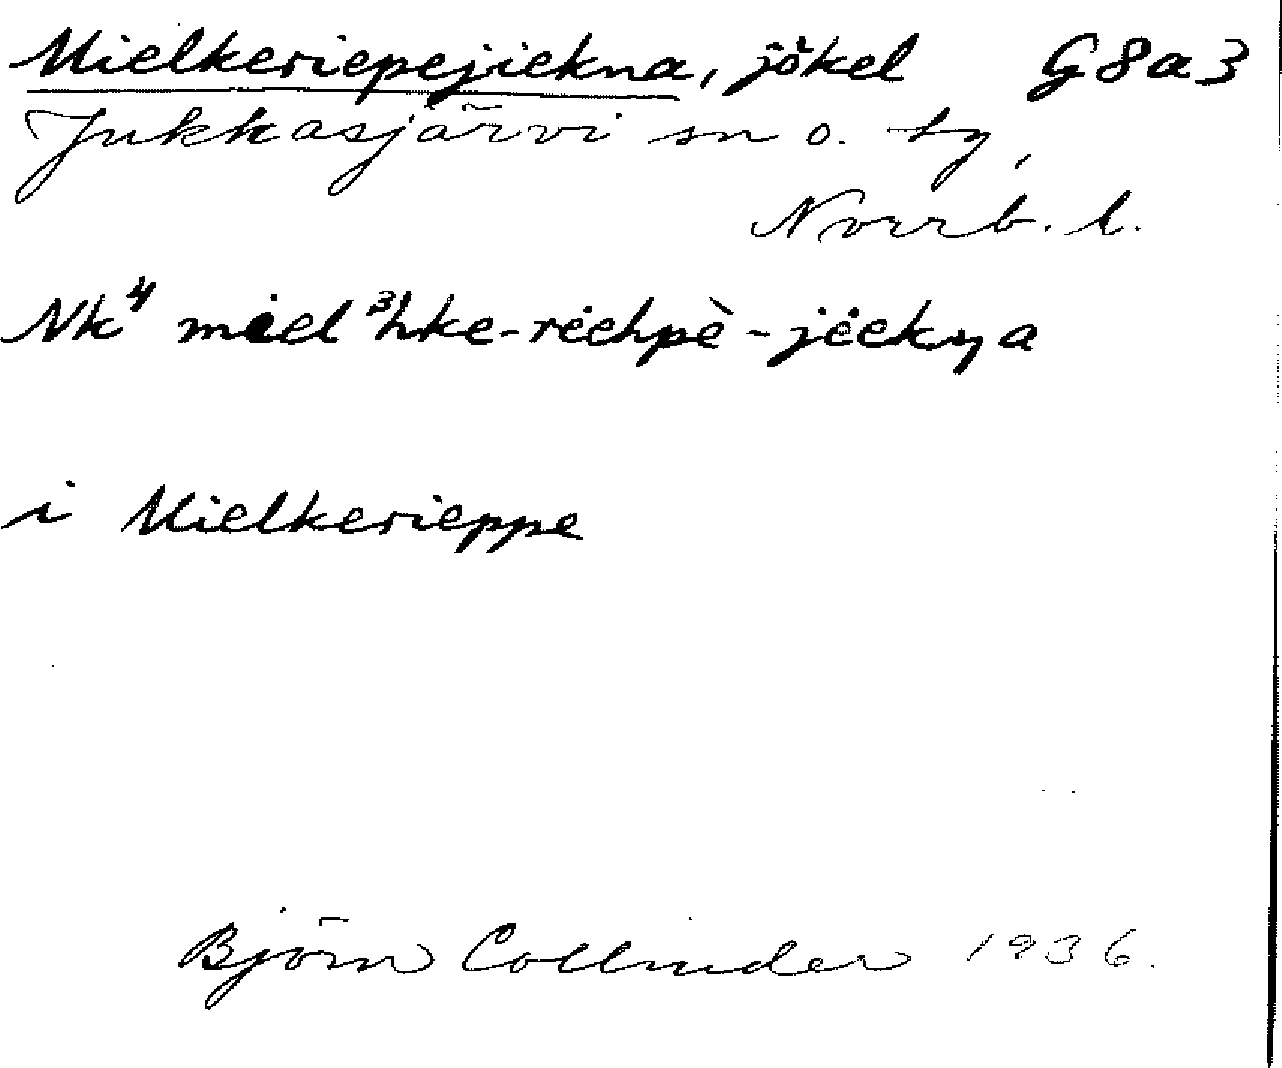 Mielkeriepejiekna, jökel G8a3
Jukkasjärvi sn o. tg,
Norrb. l.
Nk⁴ miel³hke-riehpè-jëekŋa
i Mielkerieppe
Björn Collinder 1936.